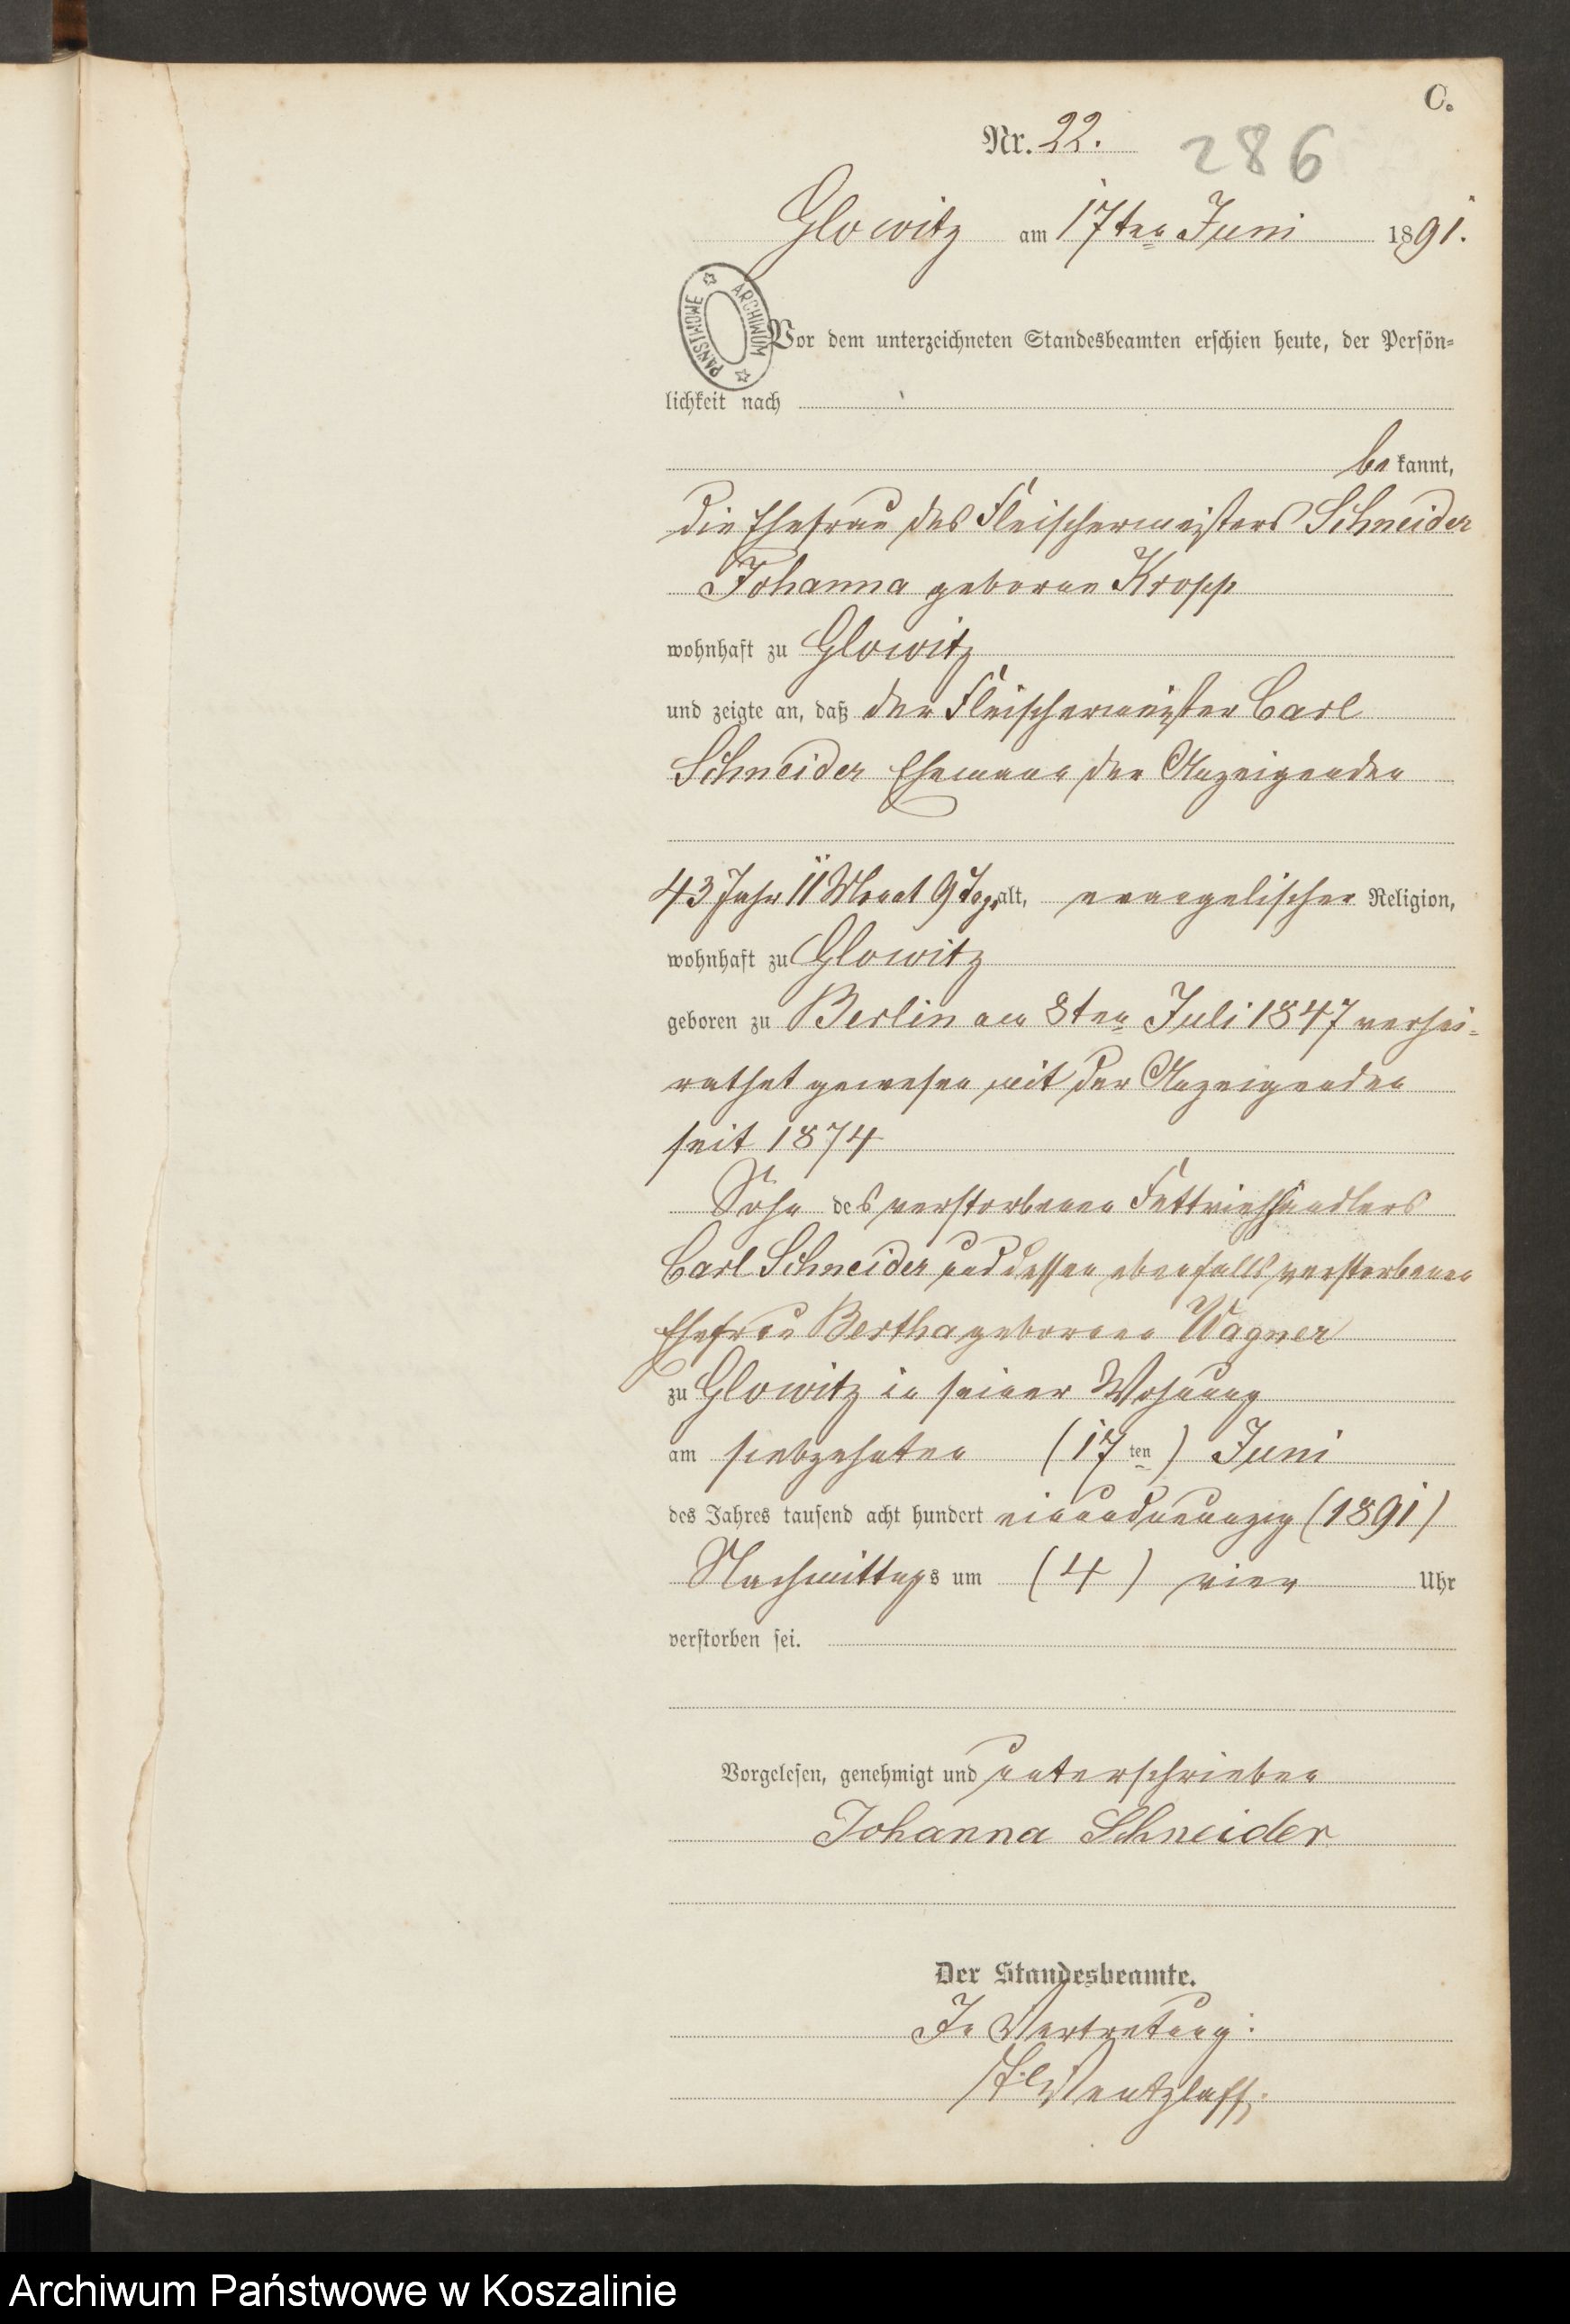 C.
Nr. 22.
286
Glowitz am 17ten Juni 1891.
ARCHIWUM PAŃSTWOWE
Vor dem unterzeichneten Standesbeamten erschien heute, der Persön-
lichkeit nach
bekannt,
die Ehefrau des Fleischermeisters Schneider
Johanna geborne Kropp
wohnhaft zu Glowitz
und zeigte an, daß der Fleischermeister Carl
Schneider Ehemann der Anzeigenden
43 Jahr 11 Monat 9 Tage alt, evangelischer Religion,
wohnhaft zu Glowitz
geboren zu Berlin am 8ten Juli 1847 verhei-
rathet gewesen mit der Anzeigenden
seit 1874
Sohn des verstorbenen Fettviehhändlers
Carl Schneider und dessen ebenfalls verstorbenen
Ehefrau Bertha geborene Wagner
zu Glowitz in seiner Wohnung
am siebzehnten (17ten) Juni
des Jahres tausend acht hundert einundneunzig (1891)
Nachmittags um (4) vier Uhr
verstorben sei.
Vorgelesen, genehmigt und unterschrieben
Johanna Schneider
Der Standesbeamte.
In Vertretung:
Wentzlaff.
Archiwum Państwowe w Koszalinie